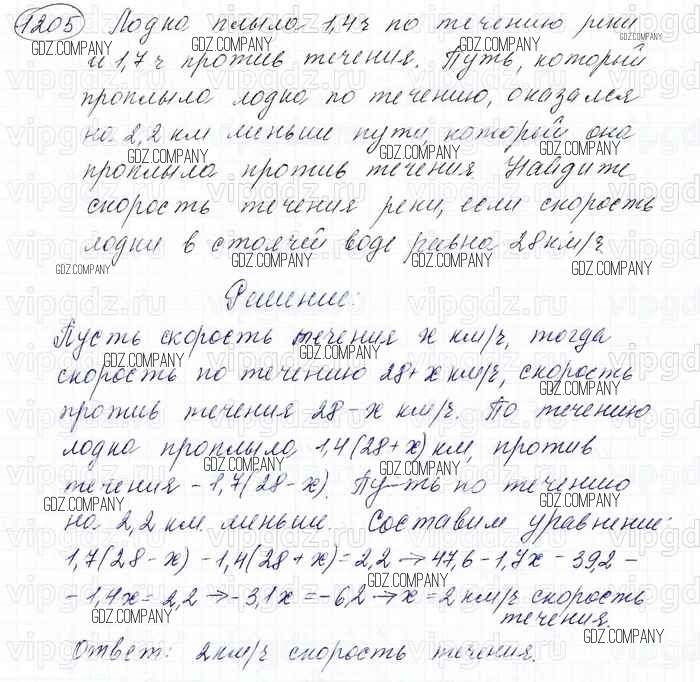 1205 Лодка плыла 1,4 ч по течению реки
и 1,7 ч против течения. Путь, который
проплыла лодка по течению, оказался
на 2,2 км меньше пути, который она
проплыла против течения. Найдите
скорость течения реки, если скорость
лодки в стоячей воде равна 28 км/ч
Решение:
Пусть скорость течения x км/ч, тогда
скорость по течению 28+x км/ч, скорость
против течения 28-x км/ч. По течению
лодка проплыла 1,4(28+x) км, против
течения - 1,7(28-x). Путь по течению
на 2,2 км меньше. Составим уравнение:
1,7(28-x) - 1,4(28+x) = 2,2 → 47,6 - 1,7x - 39,2 -
- 1,4x = 2,2 → -3,1x = -6,2 → x = 2 км/ч скорость
течения.
Ответ: 2 км/ч скорость течения.
GDZ.COMPANY
vipgdz.ru